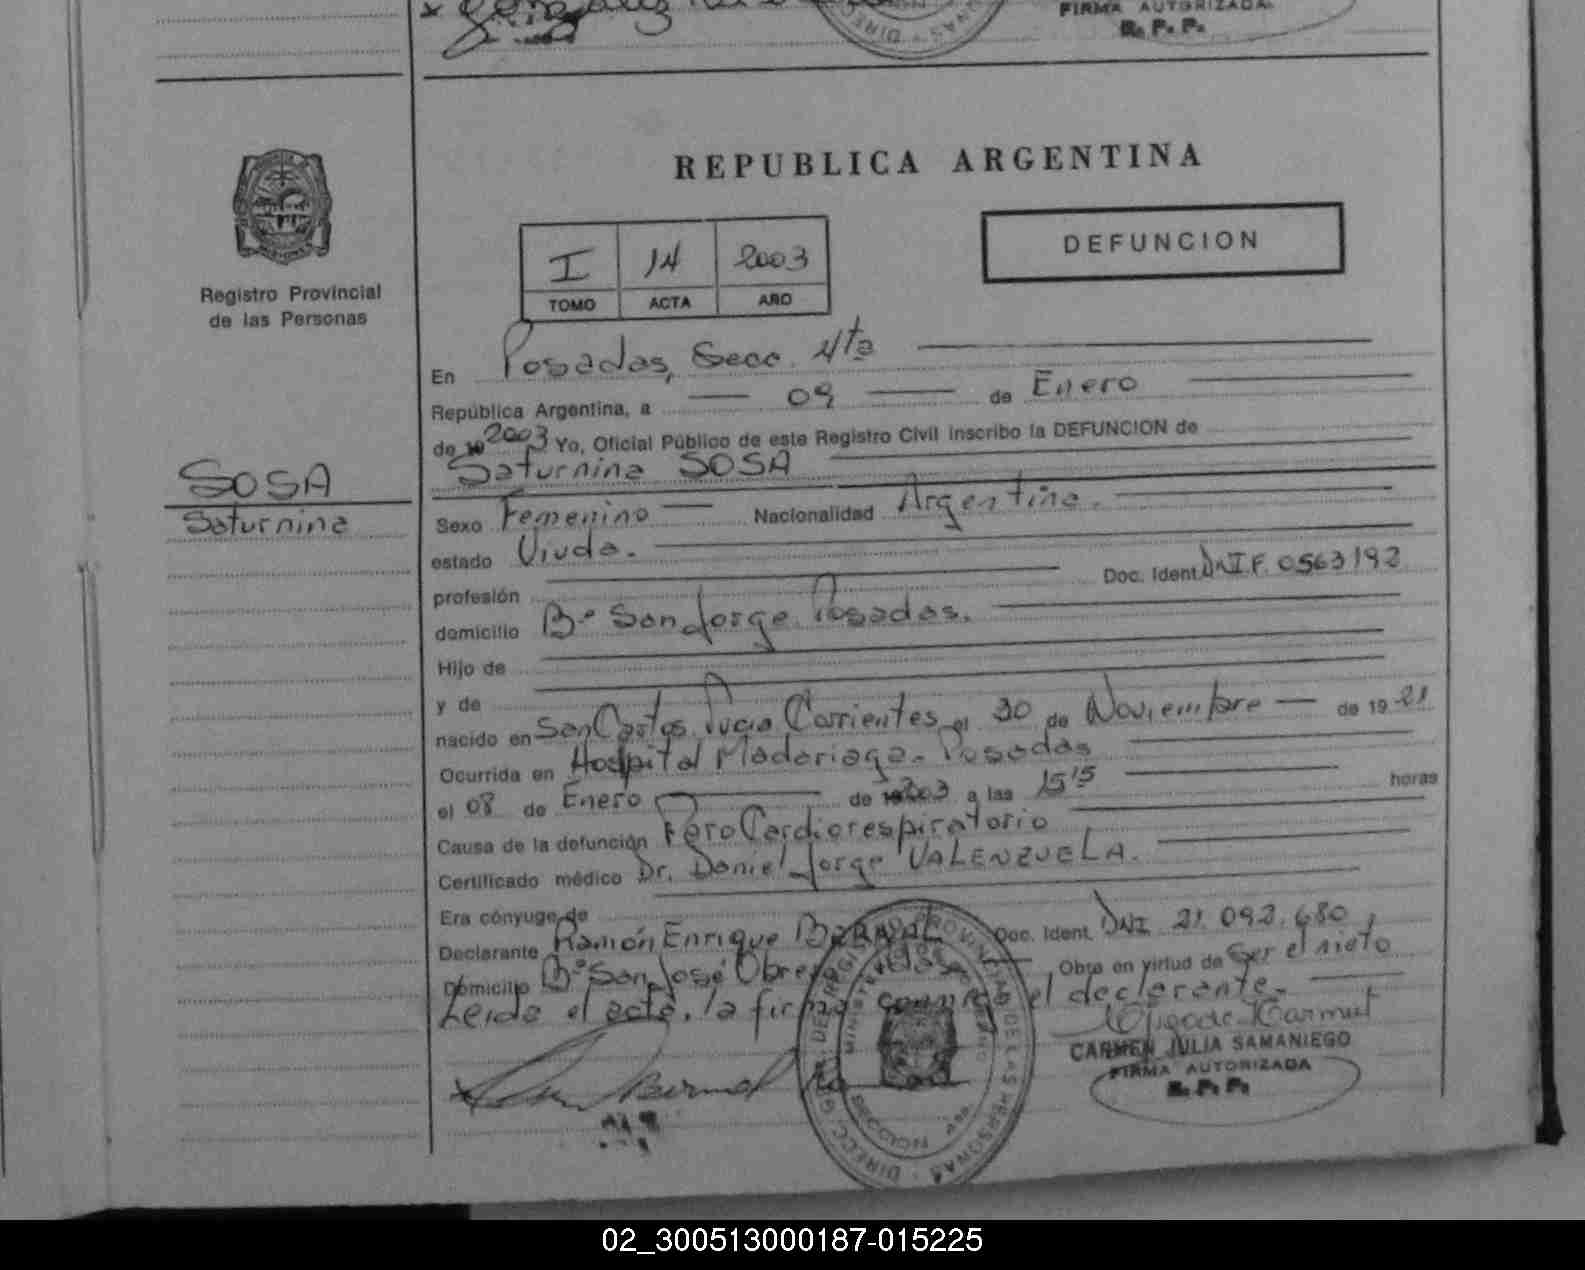 FIRMA AUTORIZADA
R. P. P.
REPUBLICA ARGENTINA
DEFUNCION
I 14 2003
TOMO ACTA AÑO
Registro Provincial
de las Personas
En Posadas, Secc. 4ta
República Argentina, a 09 de Enero
de 2003 Yo, Oficial Público de este Registro Civil inscribo la DEFUNCION de
Saturnina SOSA
SOSA
Saturnina
Sexo Femenino Nacionalidad Argentina.
estado Viuda.
profesión Doc. Ident. DNI F. 0563192
domicilio Bº San Jorge Posadas.
Hijo de
y de
nacido en San Carlos Lucia Corrientes el 30 de Noviembre de 1921
Ocurrida en Hospital Madariaga. Posadas
el 08 de Enero de 2003 a las 15 15 horas
Causa de la defunción Paro Cardiorespiratorio
Certificado médico Dr. Daniel Jorge VALENZUELA.
Era cónyuge de
Declarante Ramón Enrique BERNAL Doc. Ident. DNI 21.092.680,
Domicilio Bº San José Obrero Obra en virtud de Ser el nieto
Leida el acta, la firma conmigo el declarante.
CARMEN JULIA SAMANIEGO
FIRMA AUTORIZADA
R. P. P.
DIRECC. GRAL. DEL REGISTRO PROVINCIAL DE LAS PERSONAS
SECCION 4ta
02_300513000187-015225